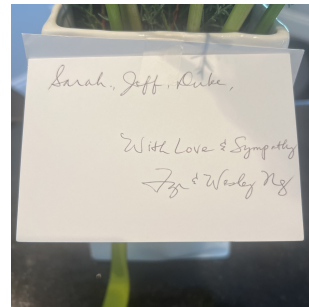 Sarah, Jeff, Duke,
With Love & Sympathy
& Wesley Ng